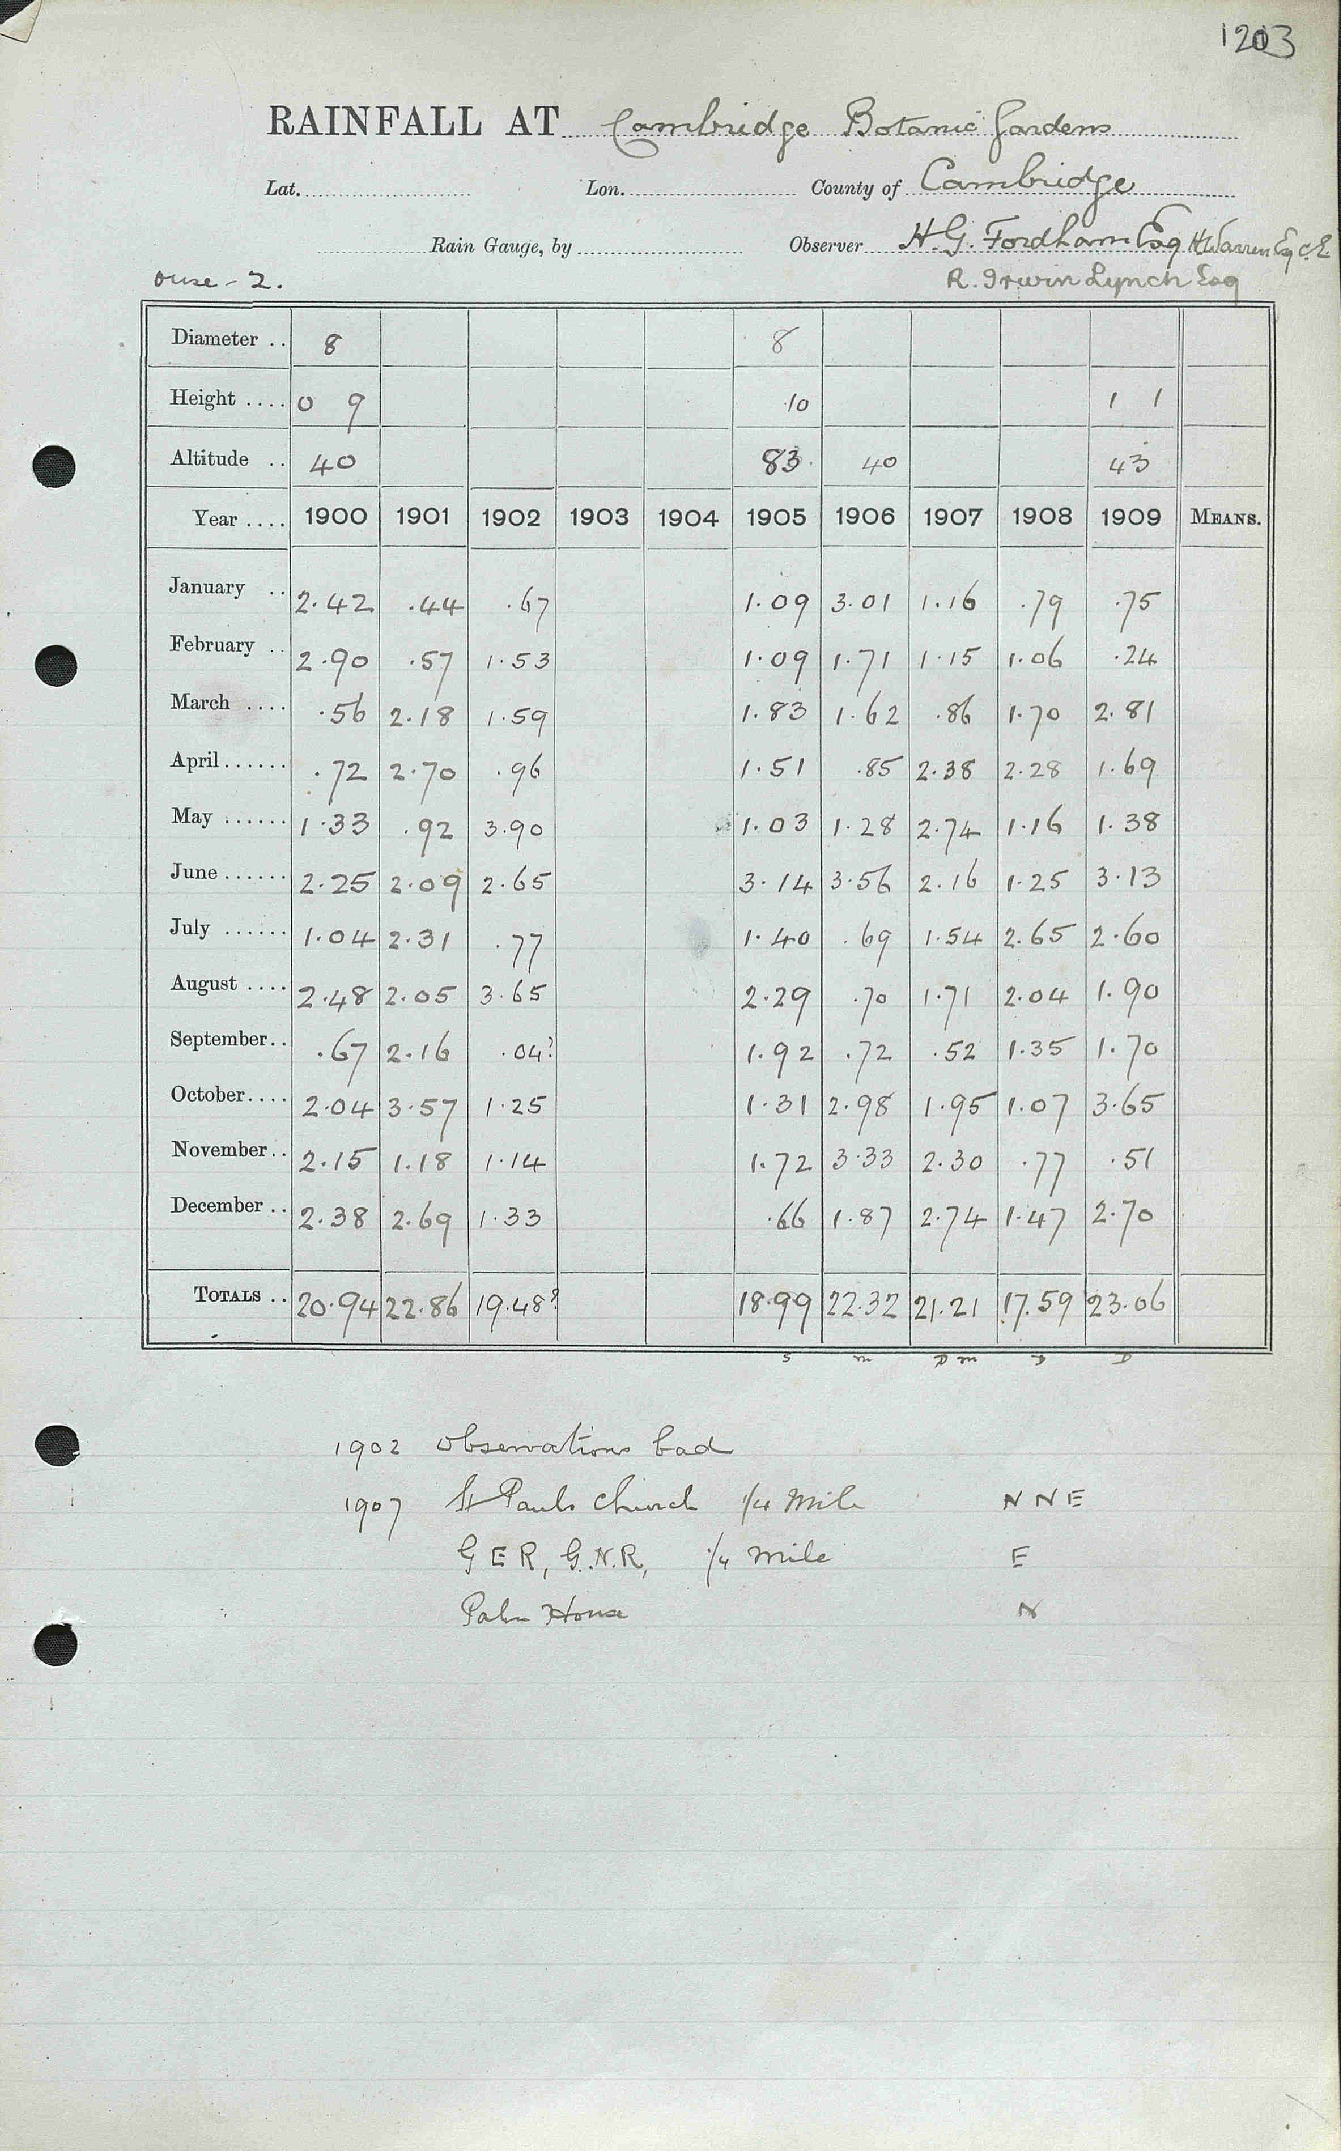 1203
RAINFALL AT Cambridge Botanic Gardens
Lat. Lon. County of Cambridge
Rain Gauge, by Observer H.G. Fordham Esq H Warren Esq C.E
Ouse - 2. R. Irwin Lynch Esq
Diameter .. 8 8
Height .... 0 9 .10 1 1
Altitude .. 40 83. 40 43
Year .... 1900 1901 1902 1903 1904 1905 1906 1907 1908 1909 MEANS.
January .. 2.42 .44 .67 1.09 3.01 1.16 .79 .75
February .. 2.90 .57 1.53 1.09 1.71 1.15 1.06 .24
March .... .56 2.18 1.59 1.83 1.62 .86 1.70 2.81
April ...... .72 2.70 .96 1.51 .85 2.38 2.28 1.69
May ...... 1.33 .92 3.90 1.03 1.28 2.74 1.16 1.38
June ...... 2.25 2.09 2.65 3.14 3.56 2.16 1.25 3.13
July ...... 1.04 2.31 .77 1.40 .69 1.54 2.65 2.60
August .... 2.48 2.05 3.65 2.29 .70 1.71 2.04 1.90
September.. .67 2.16 .04? 1.92 .72 .52 1.35 1.70
October.... 2.04 3.57 1.25 1.31 2.98 1.95 1.07 3.65
November.. 2.15 1.18 1.14 1.72 3.33 2.30 .77 .51
December .. 2.38 2.69 1.33 .66 1.87 2.74 1.47 2.70
TOTALS .. 20.94 22.86 19.48? 18.99 22.32 21.21 17.59 23.06
1902 Observations bad
1907 St Pauls Church 1/4 Mile N N E
G E R, G.N.R, 1/4 mile E
Palm House N